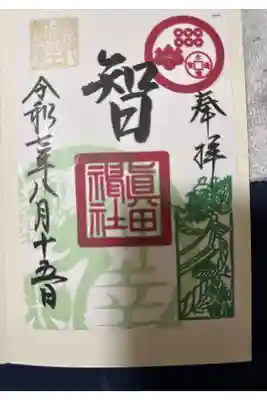 奉拝
智
眞田
神社
令和七年八月十五日